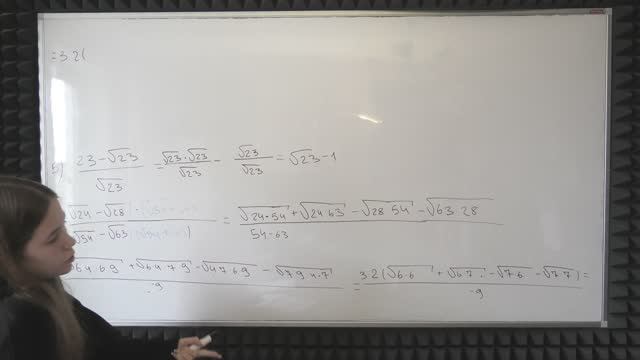 =3·2(
5) (23-√23)/√23 = (√23·√23)/√23 - √23/√23 = √23-1
(√24-√28)/(√54-√63) = (√24·54+√24·63-√28·54-√63·28)/(54-63)
(√6·4·6·9+√6·4·7·9-√4·7·6·9-√7·9·4·7)/-9 = (3·2(√6·6+√6·7-√7·6-√7·7))/-9 =